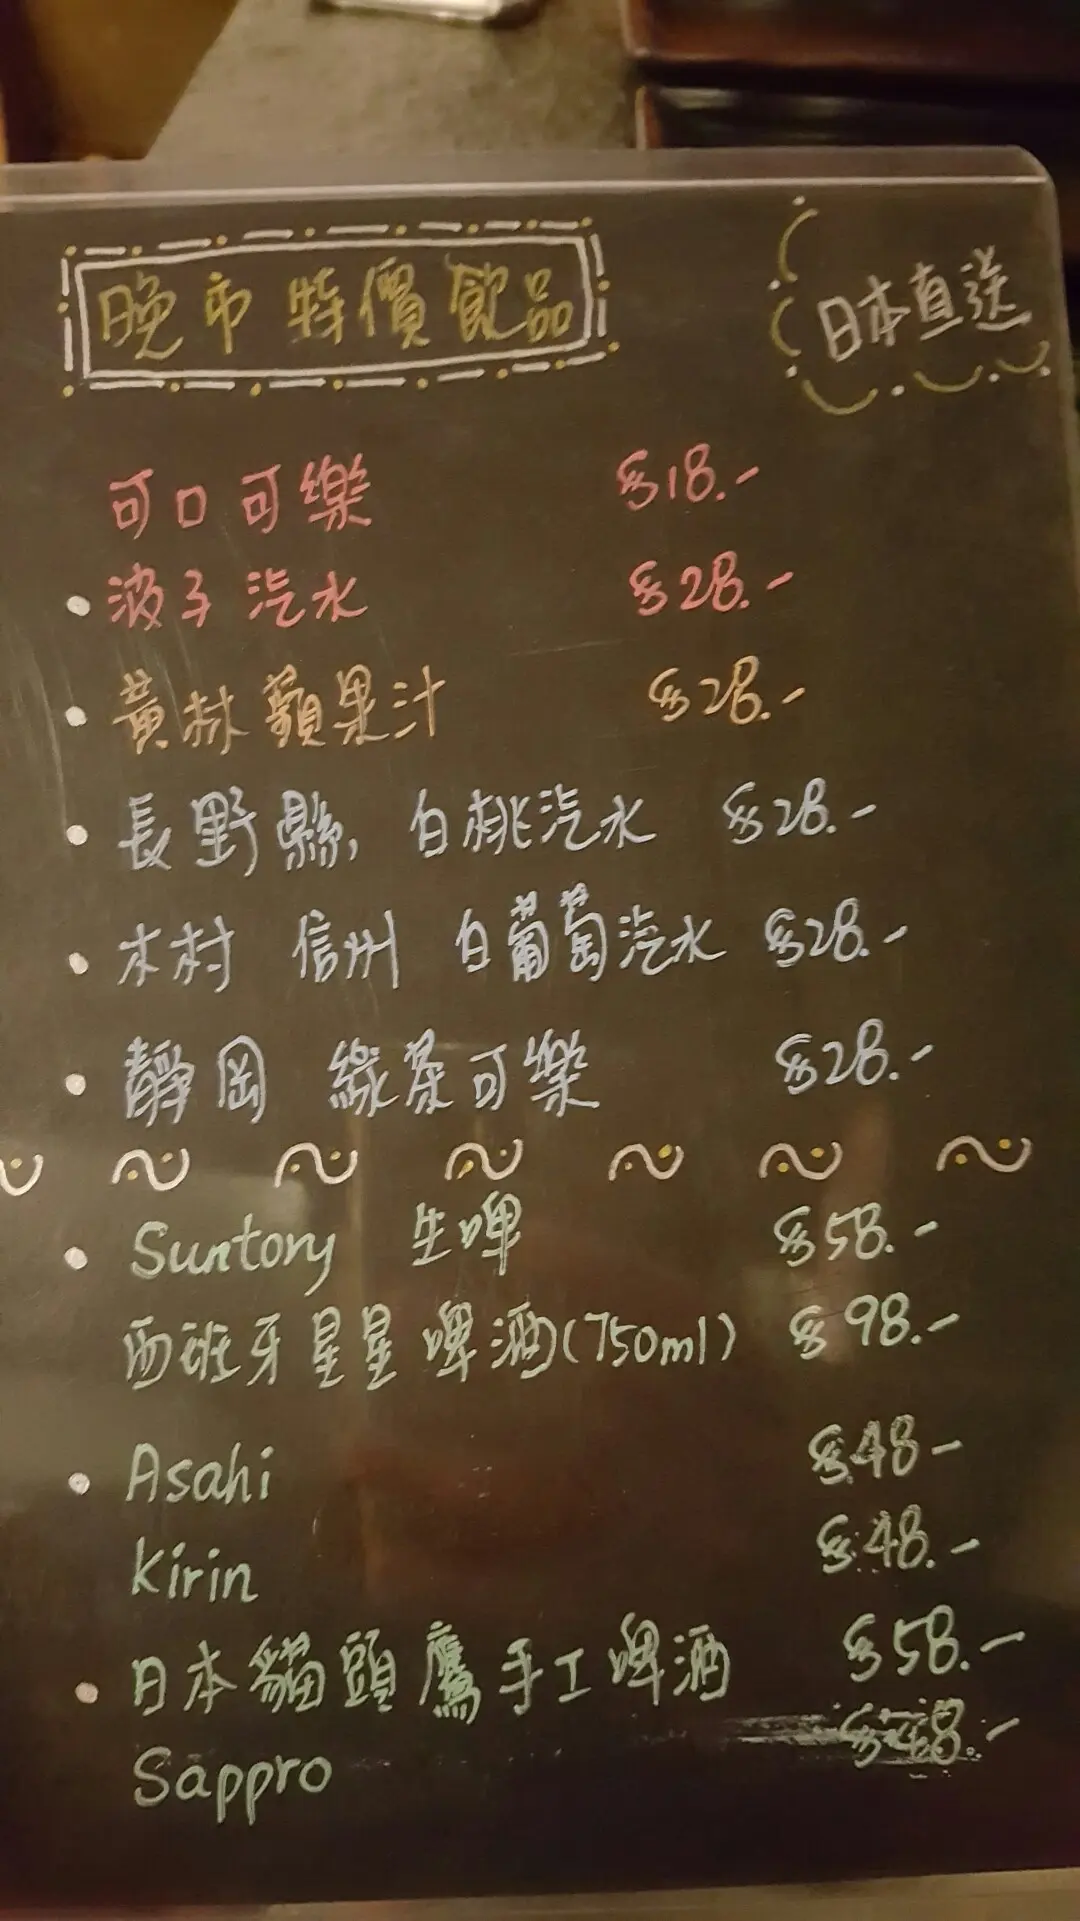 晚市特價飲品
日本直送
可口可樂 $18.-
• 波子汽水 $28.-
• 黃林蘋果汁 $28.-
• 長野縣, 白桃汽水 $28.-
• 木村 信州 白葡萄汽水 $28.-
• 靜岡 綠茶可樂 $28.-
• Suntory 生啤 $58.-
西班牙星星啤酒(750ml) $98.-
• Asahi $48-
Kirin $48.-
• 日本貓頭鷹手工啤酒 $58.-
Sappro $48.-